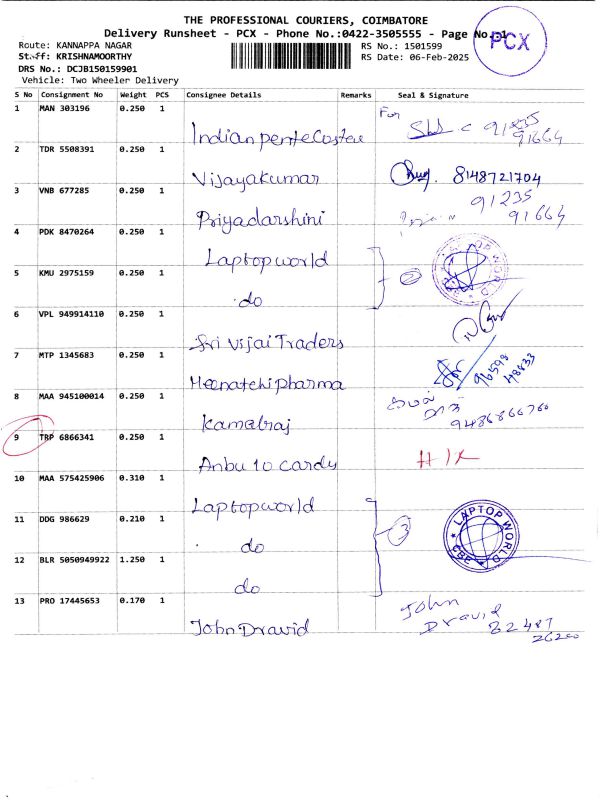 THE PROFESSIONAL COURIERS, COIMBATORE
Delivery Runsheet - PCX - Phone No.:0422-3505555 - Page No.:1
PCX
Route: KANNAPPA NAGAR
RS No.: 1501599
Staff: KRISHNAMOORTHY
RS Date: 06-Feb-2025
DRS No.: DCJB150159901
Vehicle: Two Wheeler Delivery
S No Consignment No Weight PCS Consignee Details Remarks Seal & Signature
1 MAN 303196 0.250 1 Indianpentecostau For 91235 91664
2 TDR 5508391 0.250 1 Vijayakumar 8148721704
3 VNB 677285 0.250 1 Priyadarshini 91235 91664
4 PDK 8470264 0.250 1 Laptopworld
5 KMU 2975159 0.250 1 do 2 LAPTOP WORLD
6 VPL 949914110 0.250 1 Sri Vijai Traders
7 MTP 1345683 0.250 1 Meenatchi pharma 96598 48833
8 MAA 945100014 0.250 1 Kamalraj கமல் ராஜ் 9486866760
9 TRP 6866341 0.250 1 Anbu to cardy
10 MAA 575425906 0.310 1 Laptopworld
11 DDG 986629 0.210 1 do 3 LAPTOP WORLD CBE
12 BLR 5050949922 1.250 1 do
13 PRO 17445653 0.170 1 John Dravid John Dravid 82487 26200